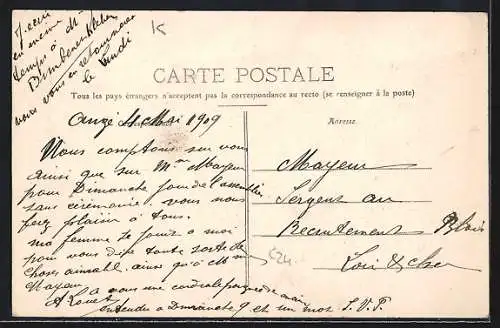 J'écris
en même
temps à Mr
Bimbenet Kleber
vous vous en retournerez
le Lundi
K
CARTE POSTALE
Tous les pays étrangers n'acceptent pas la correspondance au recto (se renseigner à la poste)
Onze 4 Mai 1909
Adresse
Nous comptons sur vous
ainsi que sur Mme Mayeur
pour Dimanche jour de l'assemblée
sans cérémonie, vous nous
ferez plaisir à tous.
ma femme se joint à moi
pour vous dire toute sorte de
choses aimable, ainsi qu'à Mme
Mayeur
à vous une cordiale poignée de main
A Louet
entendu à Dimanche 9 et un mot S.V.P.
Mayeur
Sergent au
Recrutement Blois
Loir & Cher